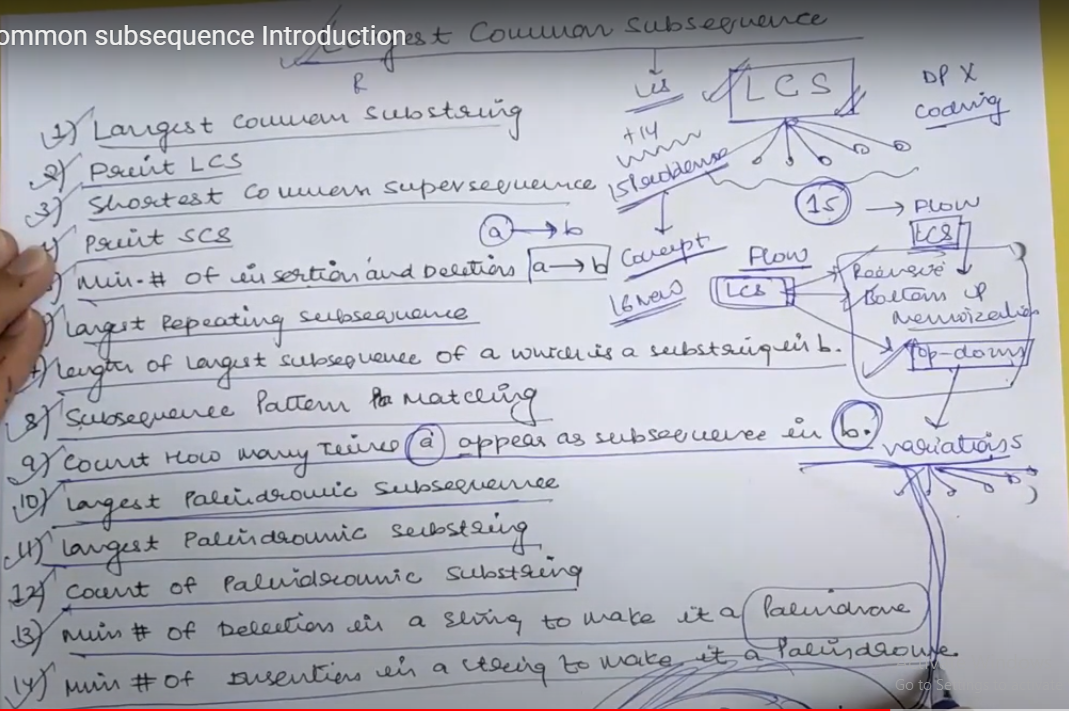 ommon subsequence Introduction
Longest Common Subsequence
1) Largest Common Substring
2) Print LCS
3) Shortest Common Supersequence
4) Print SCS
Min. # of insertion and Deletions a → b
Largest Repeating Subsequence
length of largest subsequence of a which is a substring in b.
8) Subsequence Pattern Matching
9) Count How many times a appear as subsequence in b.
10) largest Palindromic Subsequence
11) largest Palindromic Substring
12) Count of Palindromic Substring
13) Min # of Deletion in a string to make it a Palindrome
14) Min # of Insertion in a string to make it a Palindrome
LCS
+14
15 Problems
a → b
Concept
16 New
LCS
DP X
Coding
15 → Flow
LCS
Flow
LCS
Recursive
Bottom up
Memoization
Top-down
variations
Go to